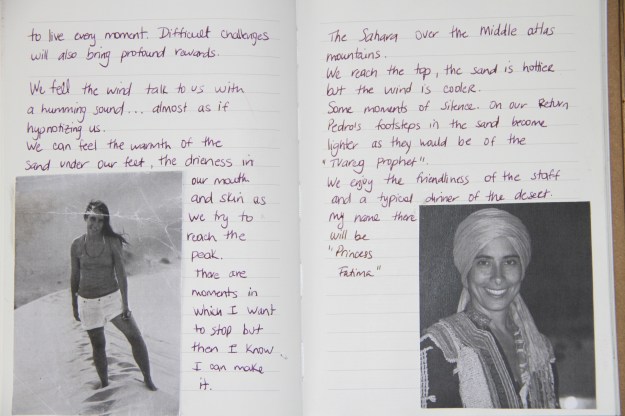 to live every moment. Difficult challenges
will also bring profound rewards.
We fell the wind talk to us with
a humming sound... almost as if
hypnotizing us.
We can feel the warmth of the
sand under our feet, the drieness in
our mouth
and skin as
we try to
reach the
peak.
There are
moments in
which I want
to stop but
then I know
I can make
it.
The Sahara over the Middle atlas
mountains.
We reach the top, the sand is hotter
but the wind is cooler.
Some moments of silence. On our Return
Pedro's footsteps in the sand become
lighter as they would be of the
"Tuareg prophet".
We enjoy the friendliness of the staff
and a typical dinner of the desert.
my name there
will be
"Princess
Fatima"